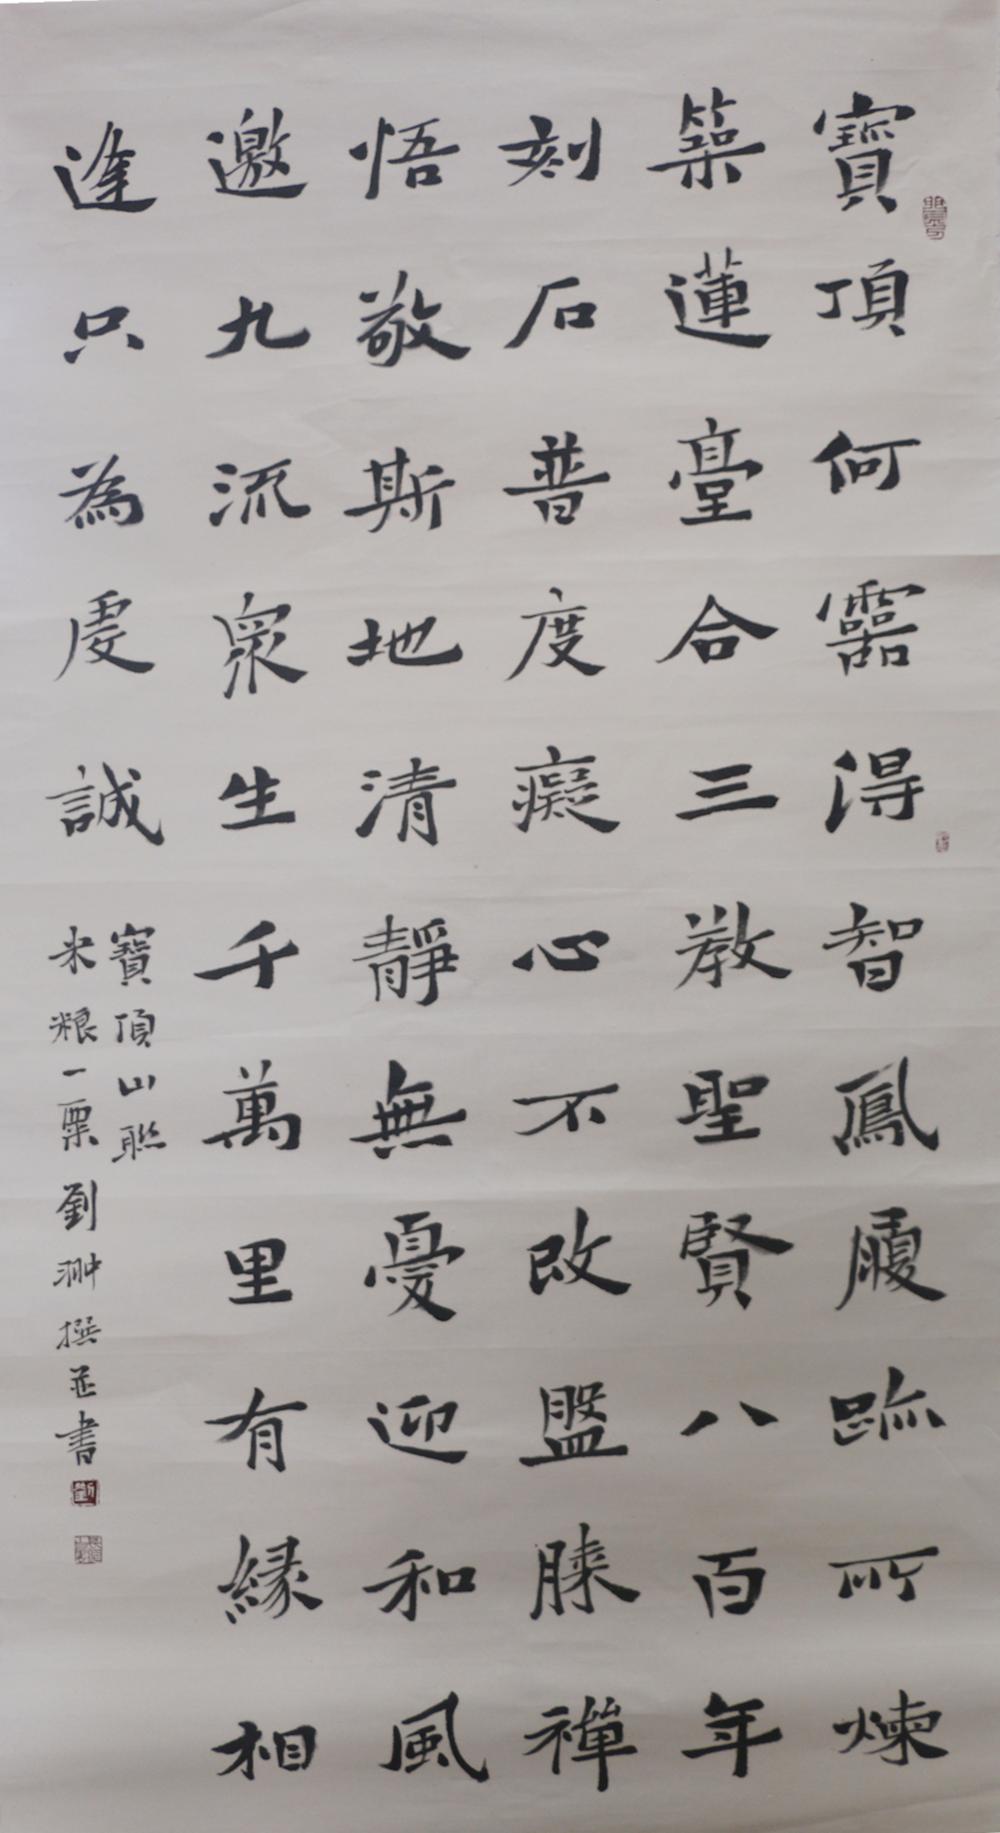 寶頂何靈得智鳳履跡所煉
築蓮臺合三教聖賢八百年
刻石普度癡心不改盤膝禪
悟敬斯地清靜無憂迎和風
邀九流眾生千萬里有緣相
逢只為虔誠
寶頂山聯
米粮一粟劉翀撰并書
劉